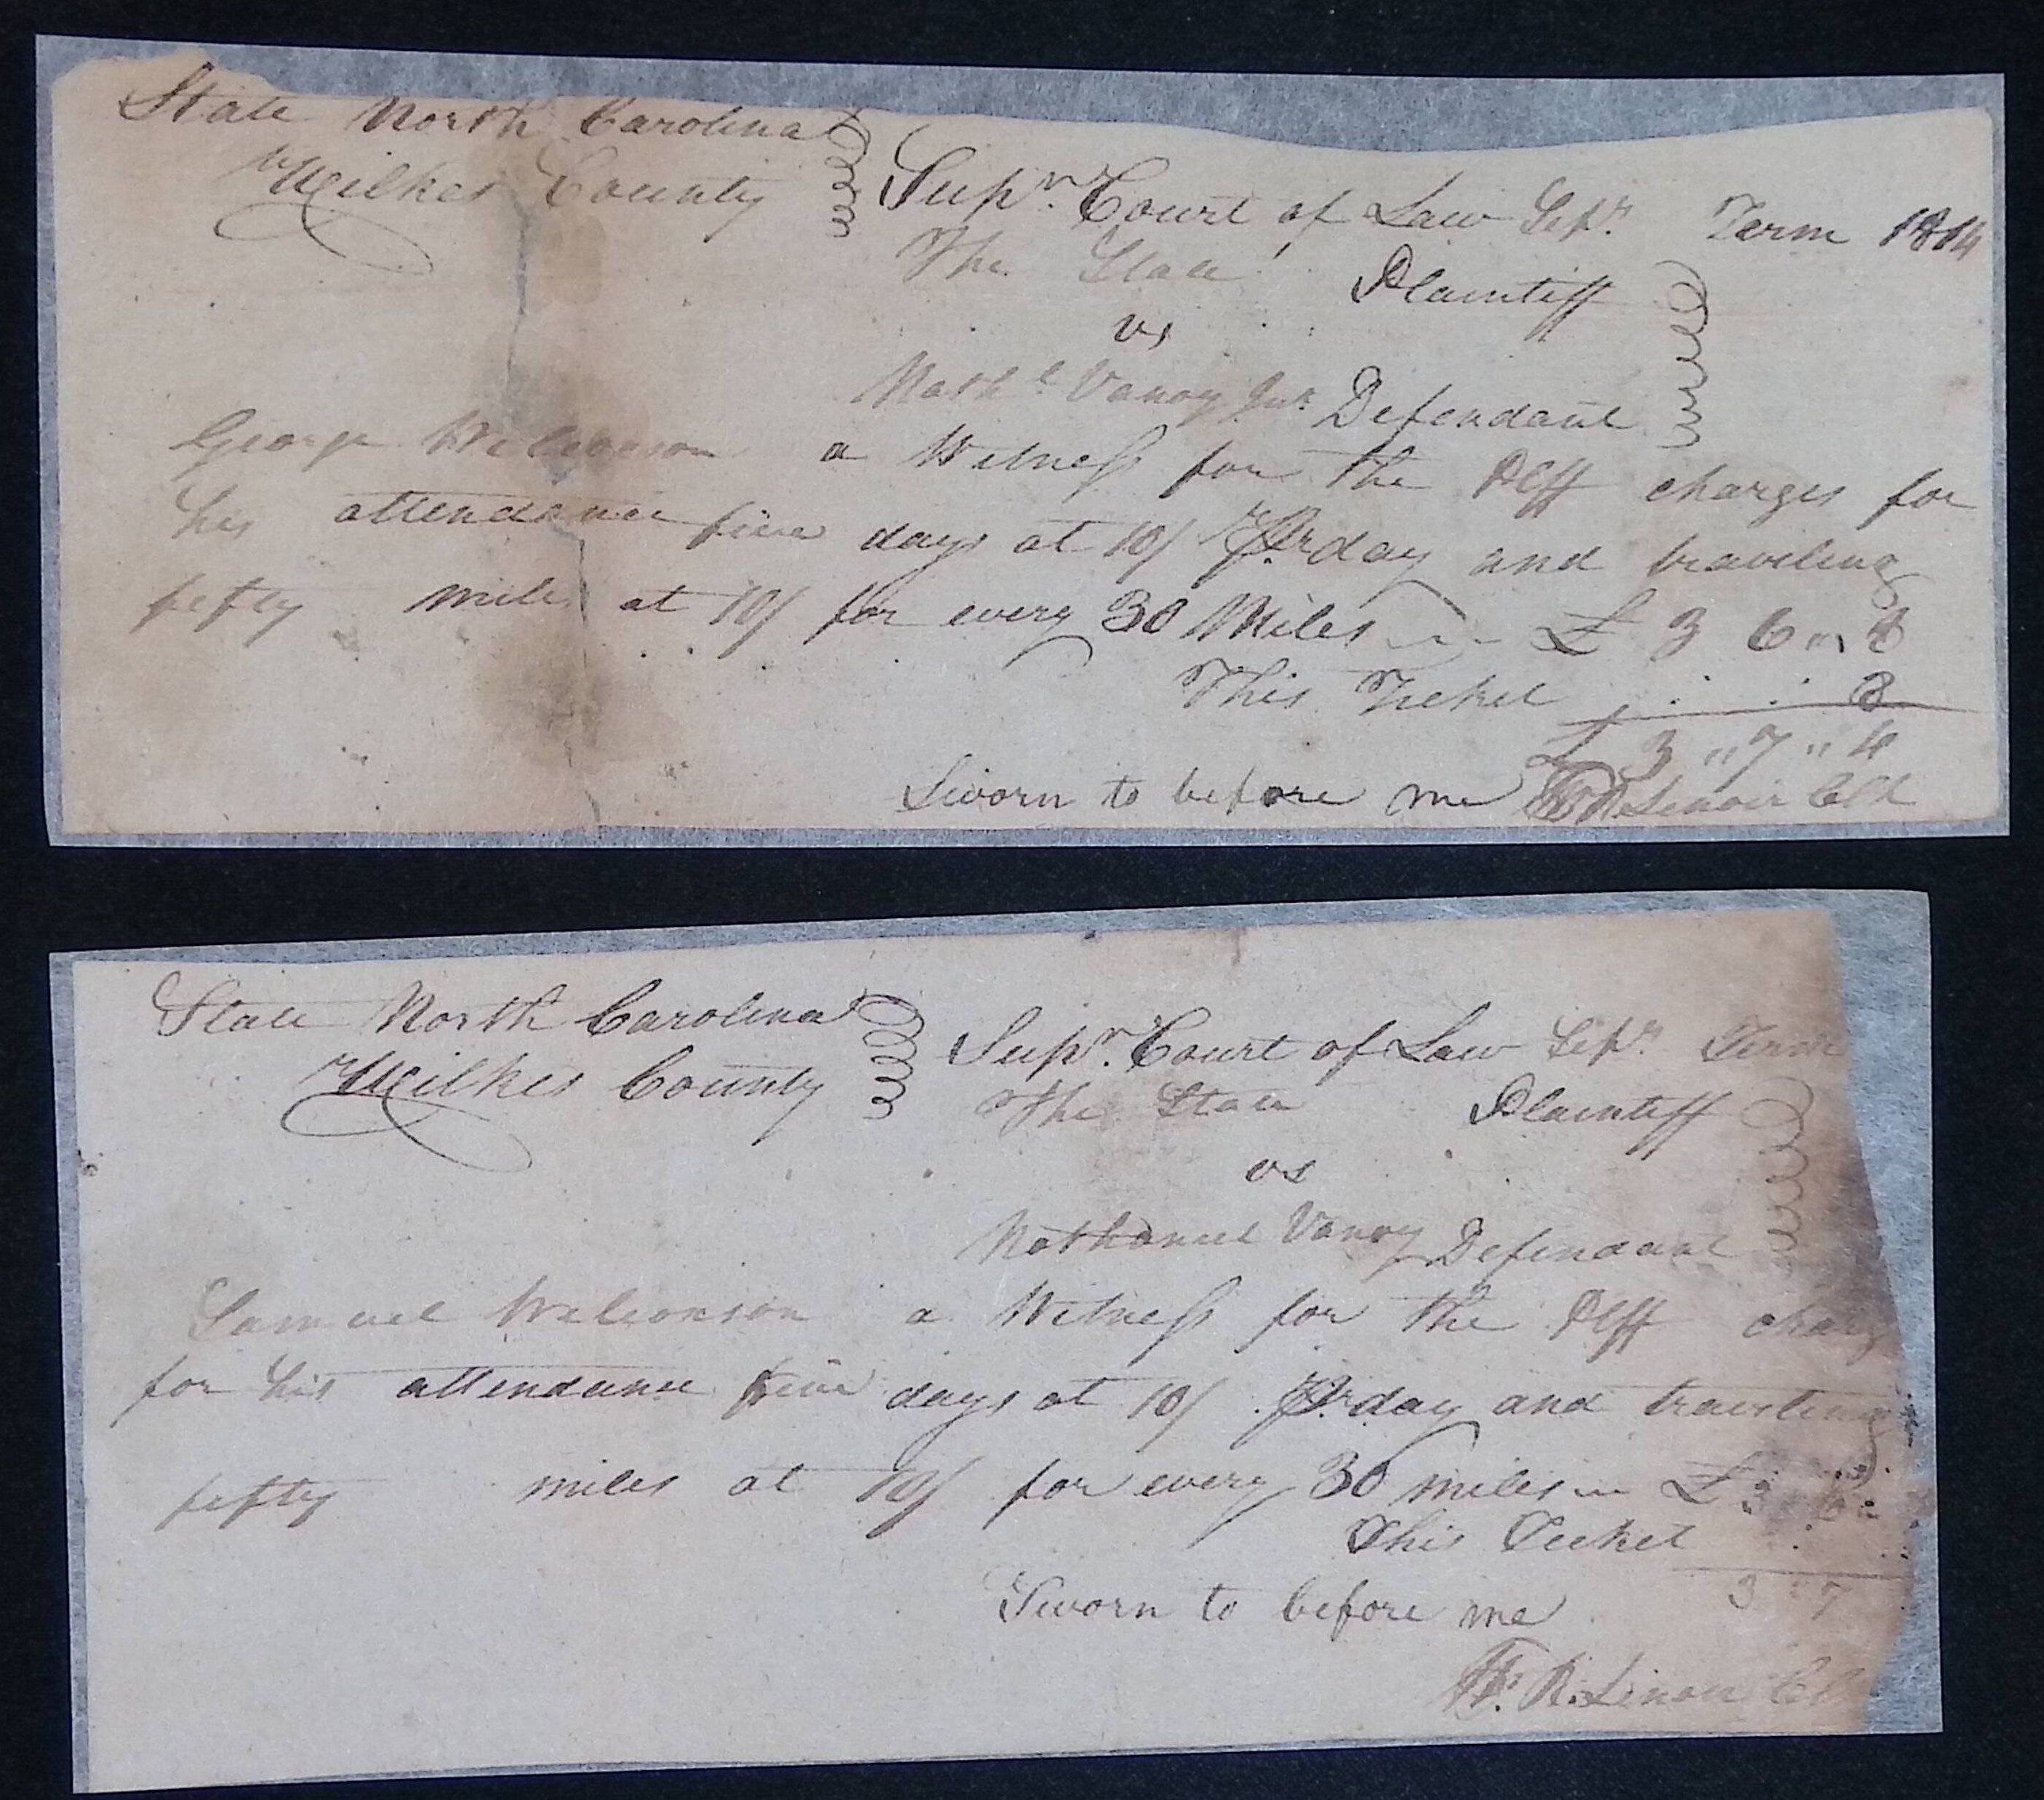 State North Carolina
Wilkes County
Supr. Court of Law Sepr. Term 1814
The State Plaintiff
vs
Nathl Vanoy Jur. Defendant
George Wilcoxson a Witness for the Plff charges for
his attendance five days at 10/ Pr. day and traveling
fifty miles at 10/ for every 30 Miles £ 3 6 " 8
This Ticket 8
£ 3 " 7 " 4
Sworn to before me R Lenoir Clk
State North Carolina
Wilkes County
Supr. Court of Law Sepr. Term
The State Plaintiff
vs
Nathaniel Vanoy Defendant
Samuel Wilcoxson a Witness for the Plff charg
for his attendance five days at 10/ Pr. day and traveling
fifty miles at 10/ for every 30 miles £ 3 " 6 "
This Ticket
3 " 7
Sworn to before me
R. Lenoir Cl